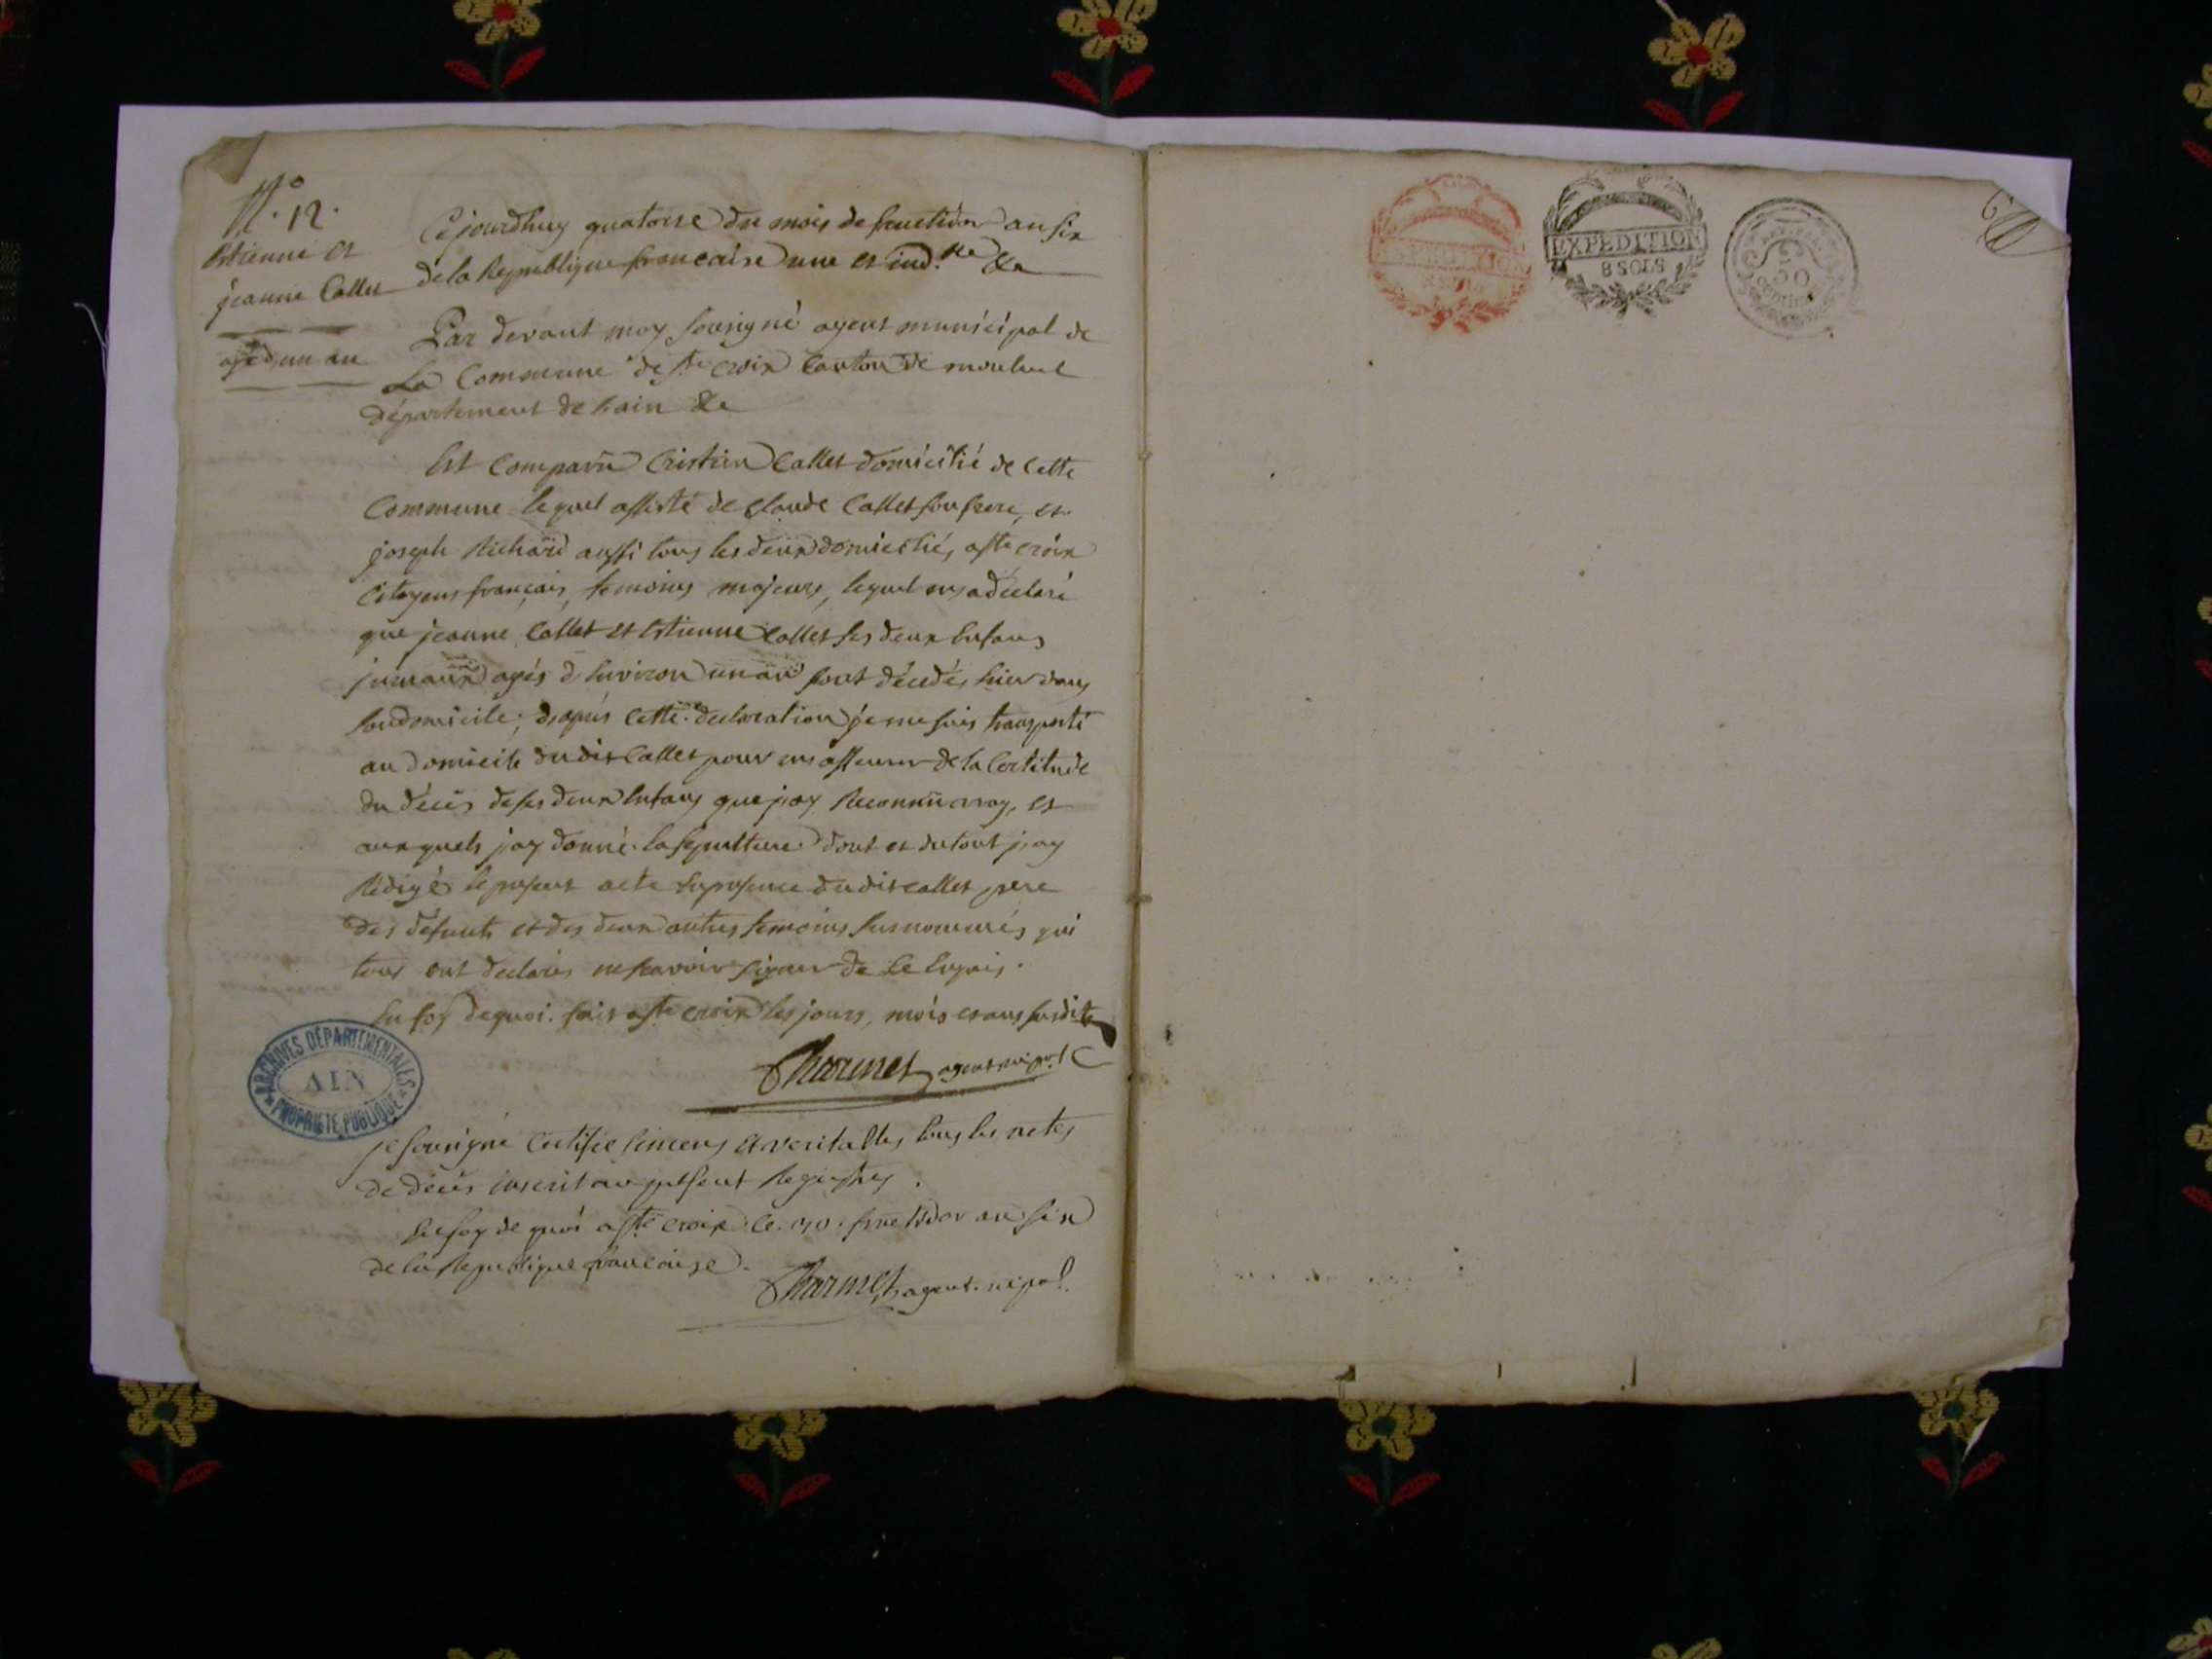 N.° 12.
Estienne et
jeanne Callet
agé d'un an
Cejourdhuy quatorse du mois de fructidor an six
de la Republique francaise une et ind.ble &a
Par devant moy sousigné agent municipal de
La Commune de ste croix Canton de montluel
département de l'ain &a
Est Comparu Cristin Callet domicilié de Cette
Commune lequel assisté de Claude Callet son frere, et
joseph Richard aussi tous les deux domiciliés a ste croix
Citoyens français, temoins majeurs, lequel m'a déclaré
que jeanne Callet et Estienne Callet ses deux Enfans
jumaux agés d'Environ un an sont décédés hier dans
son domicile; d'aprés Cette declaration je me suis transporté
au domicile dudit Callet pour m'asseurer de la Certitude
du décés de ses deux Enfans que j'ay Reconnu vray, et
auxquels j'ay donné la sepulture dont et du tout j'ay
Rédigé le present acte En presence dudit Callet pere
des défunts et des deux autres temoins susnommés qui
tous ont declarés ne scavoir signer de Ce Enquis.
En foy de quoi. fait a ste croix les jours, mois et ans susdits
Charmet agent m.ipal
ARCHIVES DÉPARTEMENTALES
AIN
PROPRIÉTÉ PUBLIQUE
je sousigné Certifie sinceres et veritables tous les actes
de décés inscrit au present Registres.
En foy de quoi a ste croix le. 30. fructidor an six
de la Republique francaise.
Charmet agent. m.ipal.
EXPEDITION
8 SOLS
EXPEDITION
8 SOLS
50
centimes